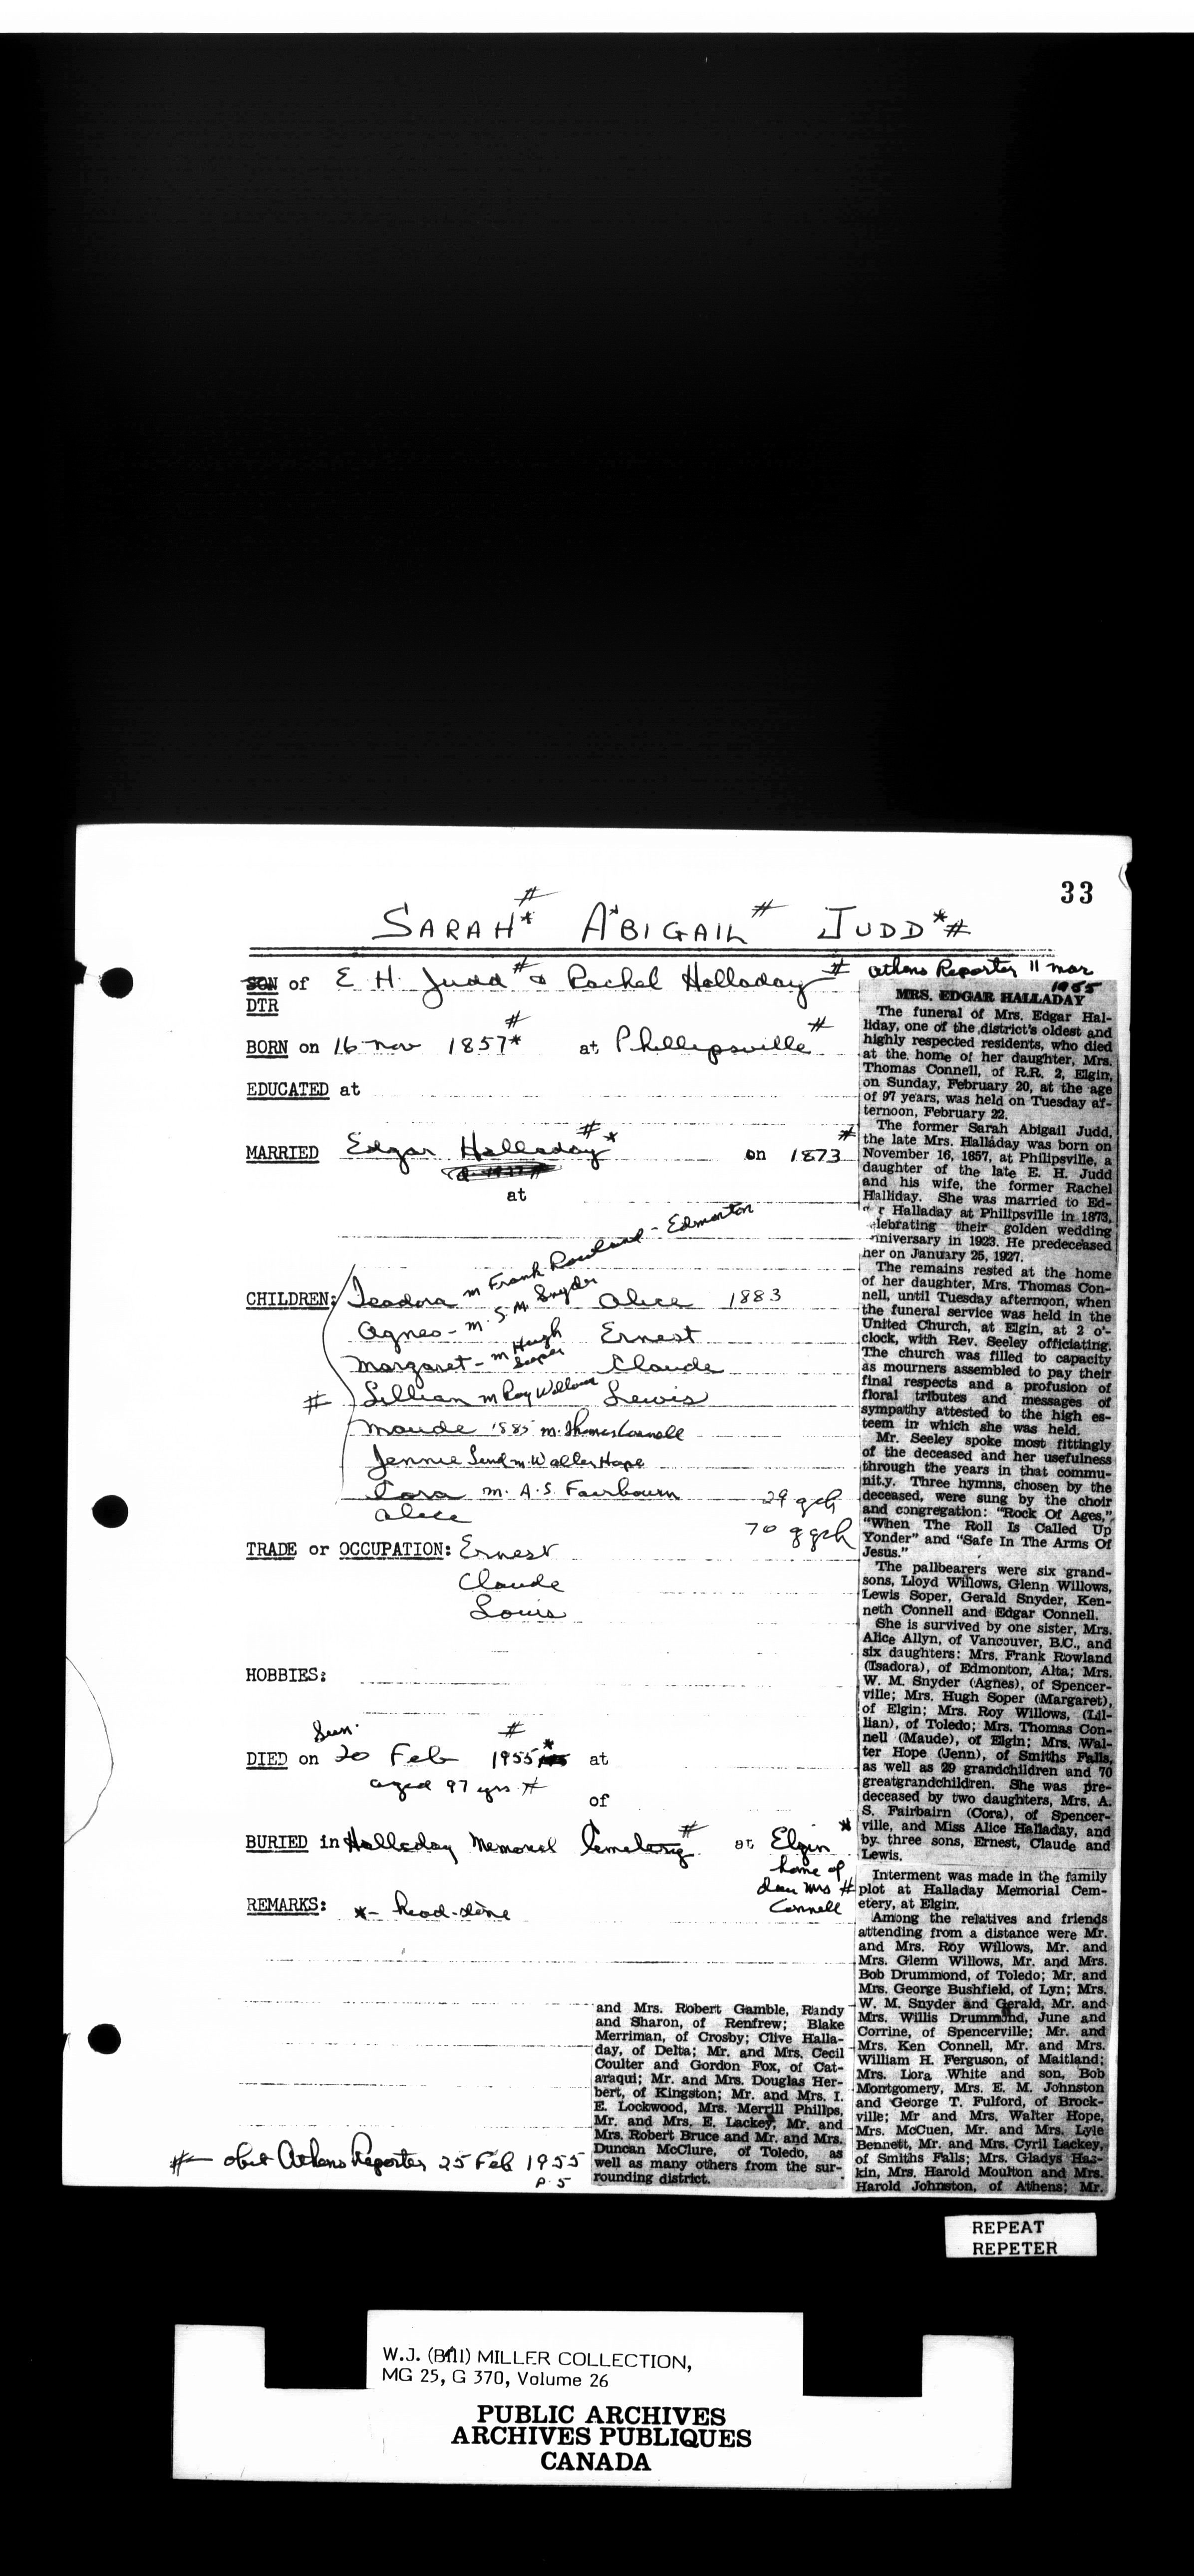 33
SARAH #* A*BIGAIL # JUDD *#
SON of E H. Judd # & Rachel Halladay #
DTR
BORN on 16 Nov 1857 #* at Phillipsville #
EDUCATED at
MARRIED Edgar Halladay #* on 1873 #
at
CHILDREN: Isadora m Frank Rowland - Edmonton Alice 1883
Agnes - m. S. M. Snyder Ernest
Margaret - m Hugh Soper Claude
# Lillian m Roy Willows Lewis
Maude 1885 m. Thomas Connell
Jennie m. Walter Hope
Cora m. A. S. Fairbourn 29 gch
Alice 70 ggch
TRADE or OCCUPATION: Ernest
Claude
Louis
HOBBIES:
Sun. #
DIED on 20 Feb 1955 * at
aged 97 yrs #
of
BURIED in Halladay Memorial Cemetery # at Elgin *
home of
dau Mrs #
Connell
REMARKS: *- head-stone
#- obit Athens Reporter 25 Feb 1955
p. 5
Athens Reporter 11 Mar
1955
MRS. EDGAR HALLADAY
The funeral of Mrs. Edgar Hal-
liday, one of the district's oldest and
highly respected residents, who died
at the home of her daughter, Mrs.
Thomas Connell, of R.R. 2, Elgin,
on Sunday, February 20, at the age
of 97 years, was held on Tuesday af-
ternoon, February 22.
The former Sarah Abigail Judd,
the late Mrs. Halladay was born on
November 16, 1857, at Philipsville, a
daughter of the late E. H. Judd
and his wife, the former Rachel
Halliday. She was married to Ed-
r Halladay at Philipsville in 1873,
elebrating their golden wedding
niversary in 1923. He predeceased
her on January 25, 1927.
The remains rested at the home
of her daughter, Mrs. Thomas Con-
nell, until Tuesday afternoon, when
the funeral service was held in the
United Church, at Elgin, at 2 o'-
clock, with Rev. Seeley officiating.
The church was filled to capacity
as mourners assembled to pay their
final respects and a profusion of
floral tributes and messages of
sympathy attested to the high es-
teem in which she was held.
Mr. Seeley spoke most fittingly
of the deceased and her usefulness
through the years in that commu-
nity. Three hymns, chosen by the
deceased, were sung by the choir
and congregation: "Rock Of Ages,"
"When The Roll Is Called Up
Yonder" and "Safe In The Arms Of
Jesus."
The pallbearers were six grand-
sons, Lloyd Willows, Glenn Willows,
Lewis Soper, Gerald Snyder, Ken-
neth Connell and Edgar Connell.
She is survived by one sister, Mrs.
Alice Allyn, of Vancouver, B.C., and
six daughters: Mrs. Frank Rowland
(Isadora), of Edmonton, Alta; Mrs.
W. M. Snyder (Agnes), of Spencer-
ville; Mrs. Hugh Soper (Margaret),
of Elgin; Mrs. Roy Willows, (Lil-
lian), of Toledo; Mrs. Thomas Con-
nell (Maude), of Elgin; Mrs. Wal-
ter Hope (Jenn), of Smiths Falls,
as well as 29 grandchildren and 70
greatgrandchildren. She was pre-
deceased by two daughters, Mrs. A.
S. Fairbairn (Cora), of Spencer-
ville, and Miss Alice Halladay, and
by three sons, Ernest, Claude and
Lewis.
Interment was made in the family
plot at Halladay Memorial Cem-
etery, at Elgin.
Among the relatives and friends
attending from a distance were Mr.
and Mrs. Roy Willows, Mr. and
Mrs. Glenn Willows, Mr. and Mrs.
Bob Drummond, of Toledo; Mr. and
Mrs. George Bushfield, of Lyn; Mrs.
W. M. Snyder and Gerald, Mr. and
Mrs. Willis Drummond, June and
Corrine, of Spencerville; Mr. and
Mrs. Ken Connell, Mr. and Mrs.
William H. Ferguson, of Maitland;
Mrs. Llora White and son, Bob
Montgomery, Mrs. E. M. Johnston
and George T. Fulford, of Brock-
ville; Mr and Mrs. Walter Hope,
Mrs. McCuen, Mr. and Mrs. Lyle
Bennett, Mr. and Mrs. Cyril Lackey,
of Smiths Falls; Mrs. Gladys Has-
kin, Mrs. Harold Moulton and Mrs.
Harold Johnston, of Athens; Mr.
and Mrs. Robert Gamble, Randy
and Sharon, of Renfrew; Blake
Merriman, of Crosby; Clive Halla-
day, of Delta; Mr. and Mrs. Cecil
Coulter and Gordon Fox, of Cat-
araqui; Mr. and Mrs. Douglas Her-
bert, of Kingston; Mr. and Mrs. I.
E. Lockwood, Mrs. Merrill Phillps,
Mr. and Mrs. E. Lackey, Mr. and
Mrs. Robert Bruce and Mr. and Mrs.
Duncan McClure, of Toledo, as
well as many others from the sur-
rounding district.
REPEAT
REPETER
W.J. (Bill) MILLER COLLECTION,
MG 25, G 370, Volume 26
PUBLIC ARCHIVES
ARCHIVES PUBLIQUES
CANADA